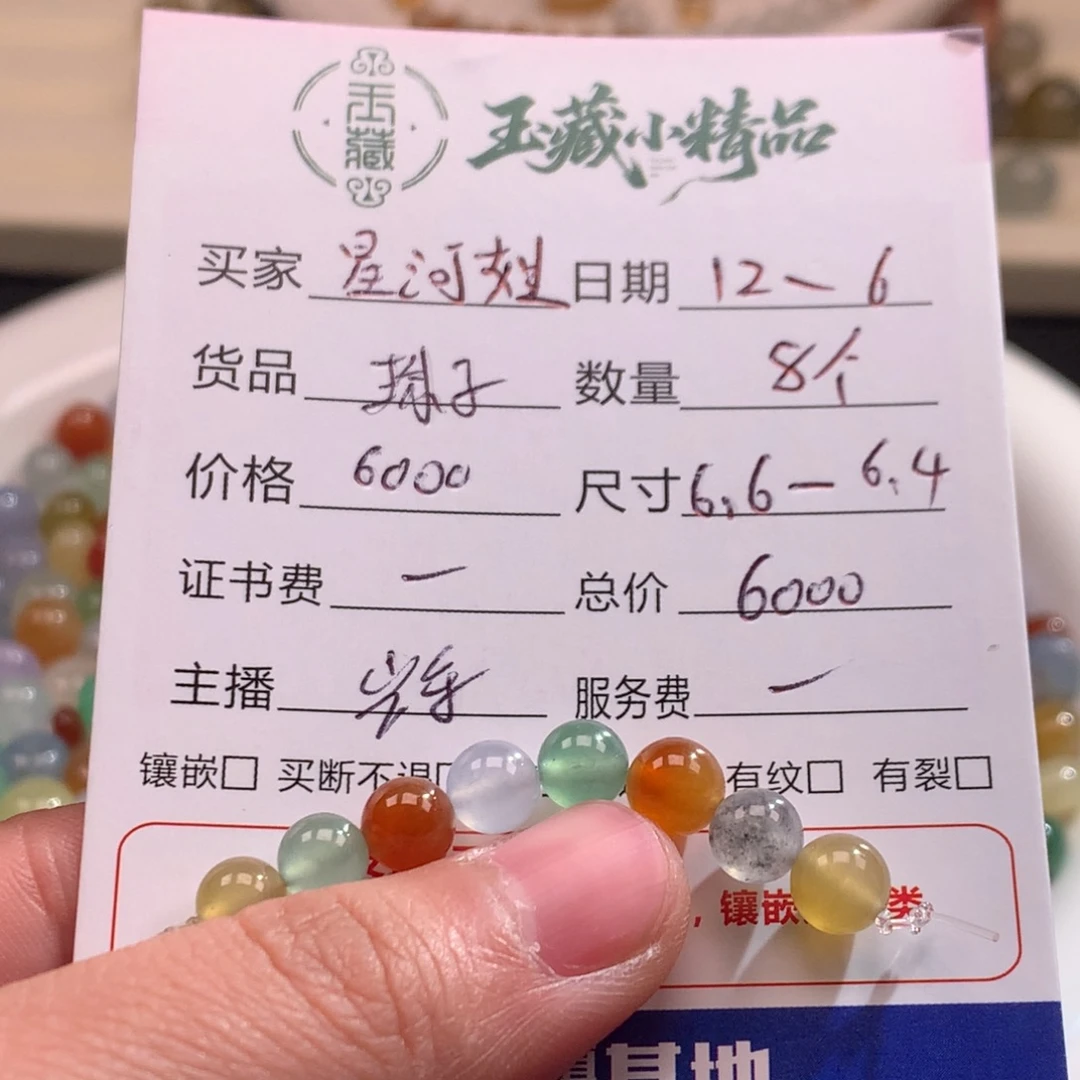 玉藏 玉藏小精品
买家 星河 日期 12-6
货品 珠子 数量 8个
价格 6000 尺寸 6.6-6.4
证书费 一 总价 6000
主播 服务费 一
镶嵌□ 买断不退 有纹□ 有裂□
，镶嵌 类
基地